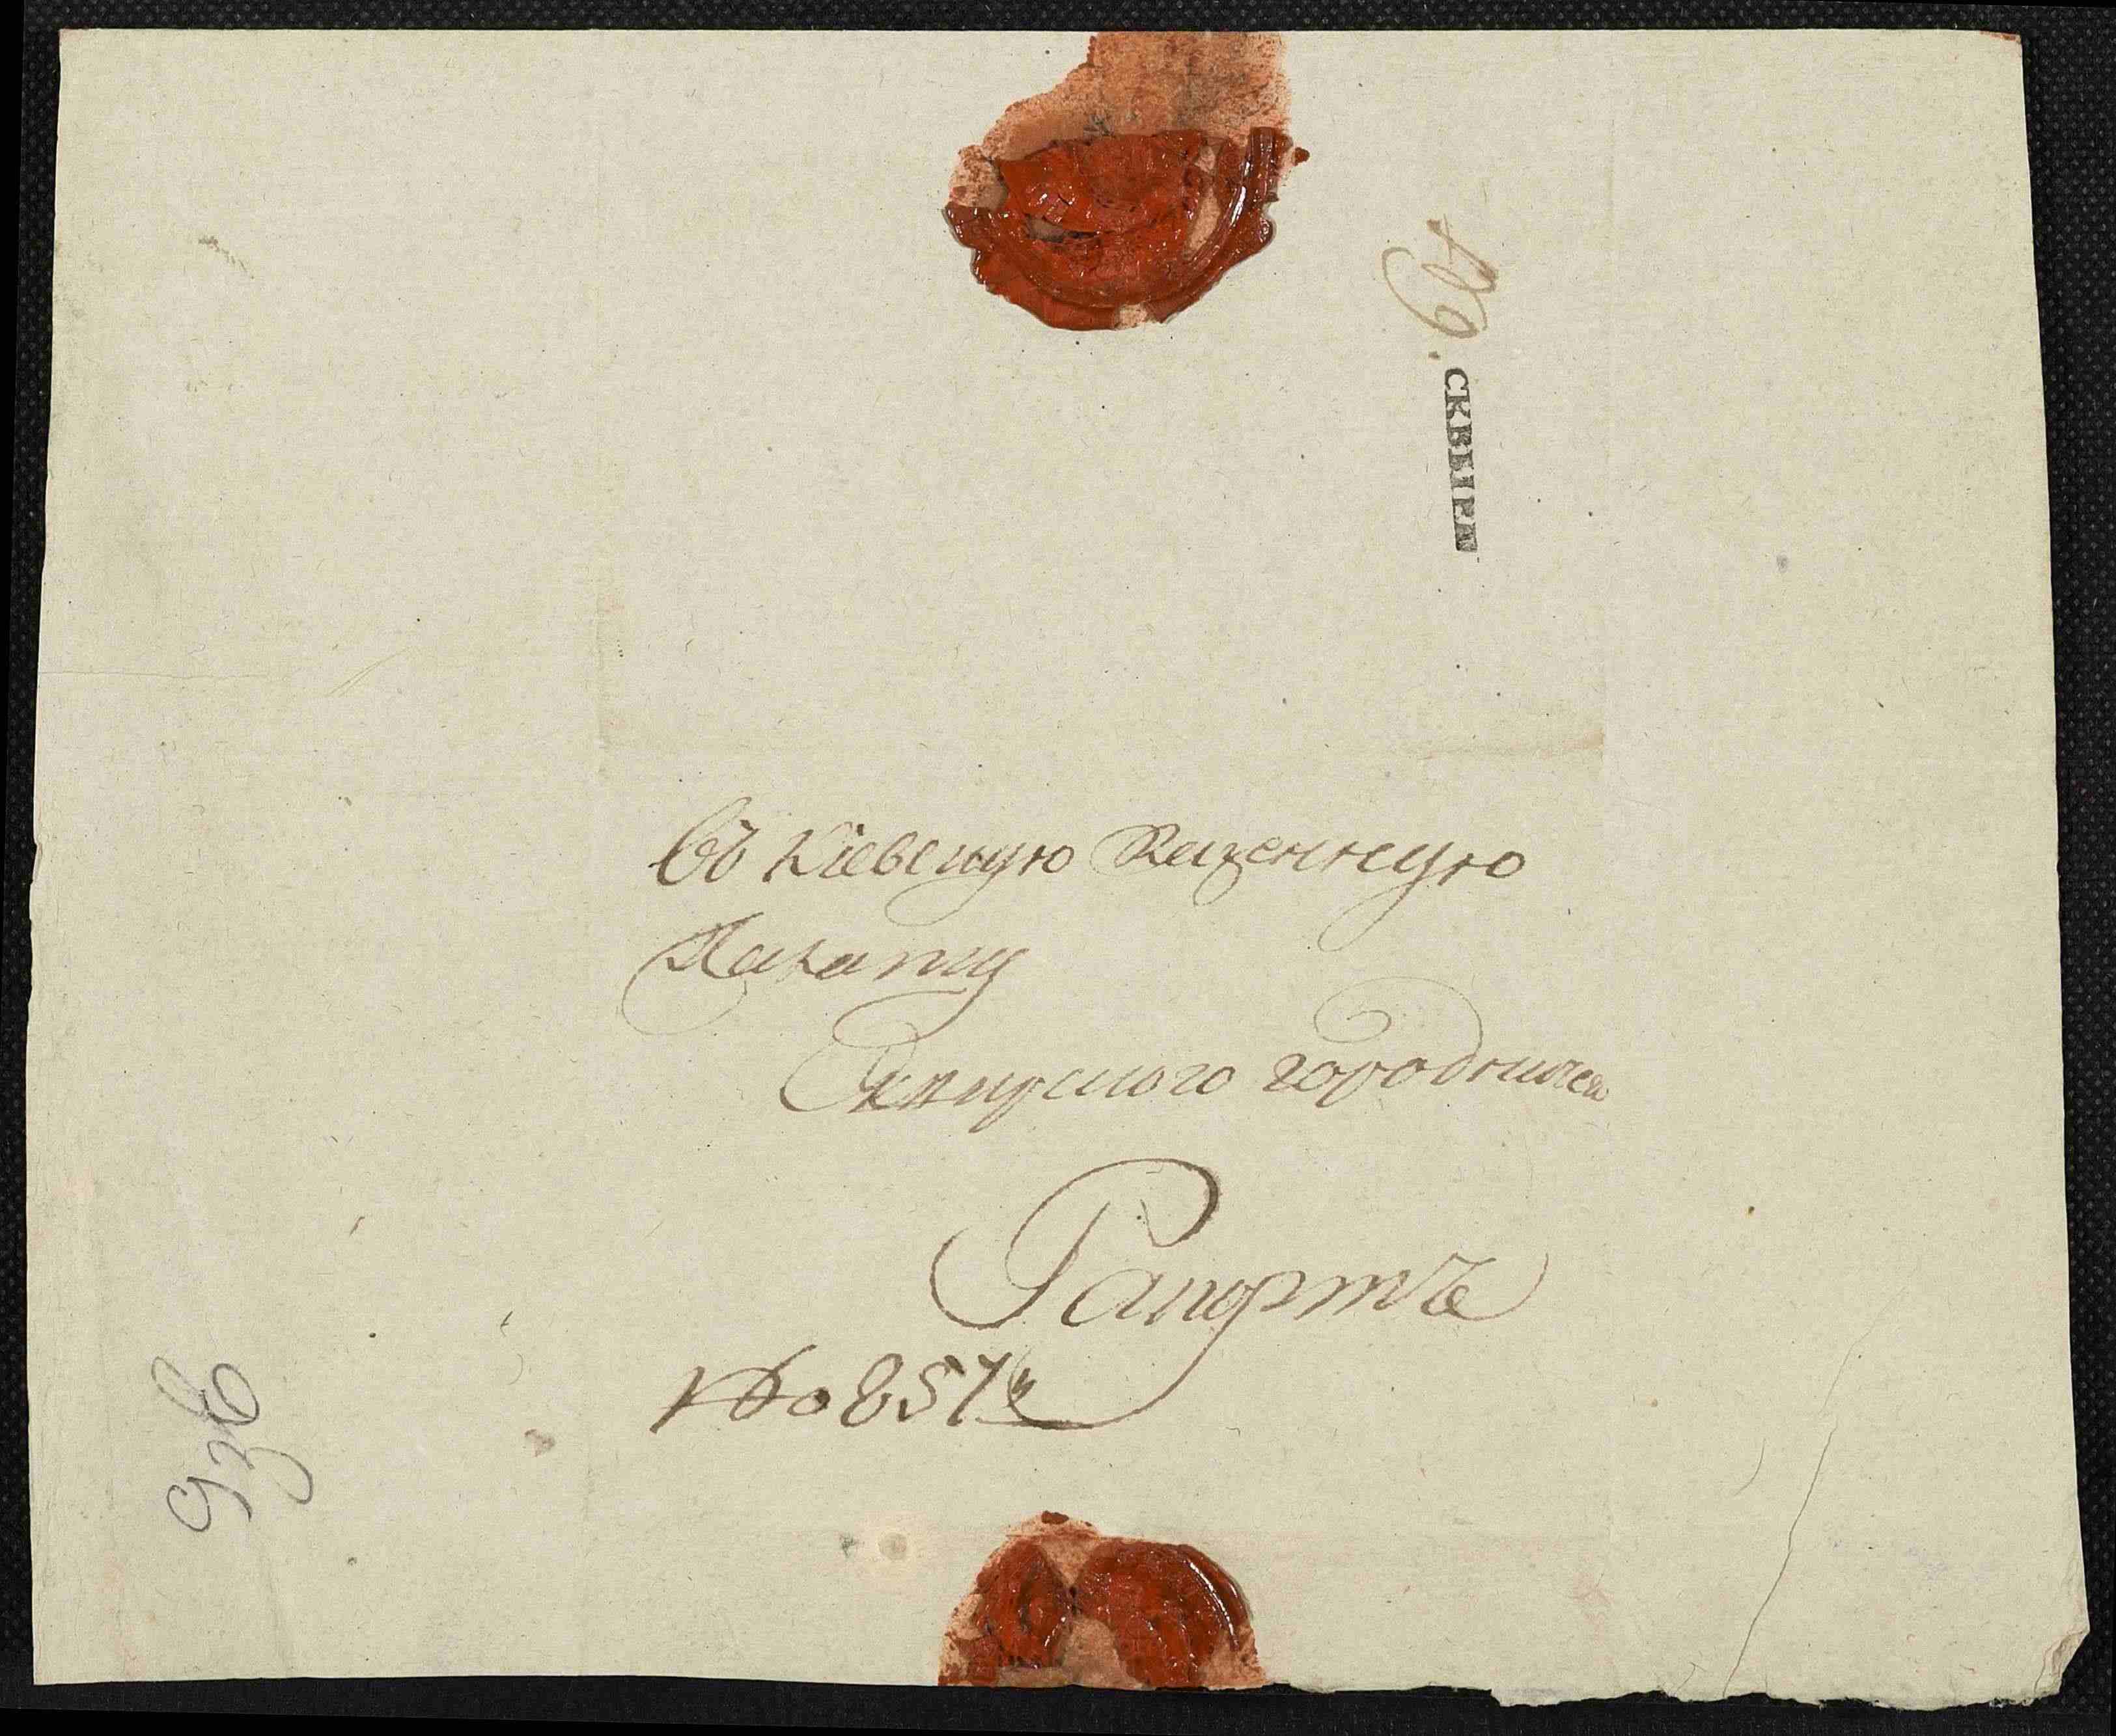 СКВЫРА
въ Кіевскую Казенную
Палату
Сквирского городничего
Рапортъ
№ 857й